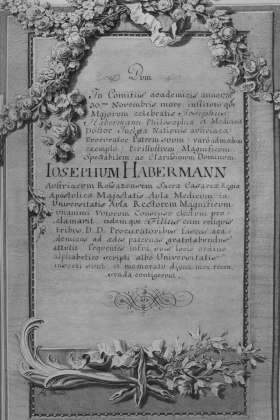 Dum
In Comitiis academicis anno 1770
30mâ Novembris more instituto que
Majorum celebratis Josephus
Habermann Philosophiæ et Medicinæ
Doctor Inclytæ Nationis austriacæ
Procurator Patrem suum / raro admodum
exemplo / Perillustrem Magnificum
Spectabilem ac Clarissimum Dominum
IOSEPHUM HABERMANN
Austriacum Sacræ Cæsareæ Regiæ
Apostolicæ Majestatis Aulæ Medicum in
Universitatis Aula Rectorem Magnificum
unanimi Votorum Consensu electum pro
clamavit eidemque Filius cum reliquis
tribus D. D. Procuratoribus fasces aca-
demicos ad ædes paternas gratulabundus
attulit sequentes infra suis locis ordine
alphabetico scripti albo Universitatis
inserti sunt et memoratu digna mox recen
senda contigerunt.